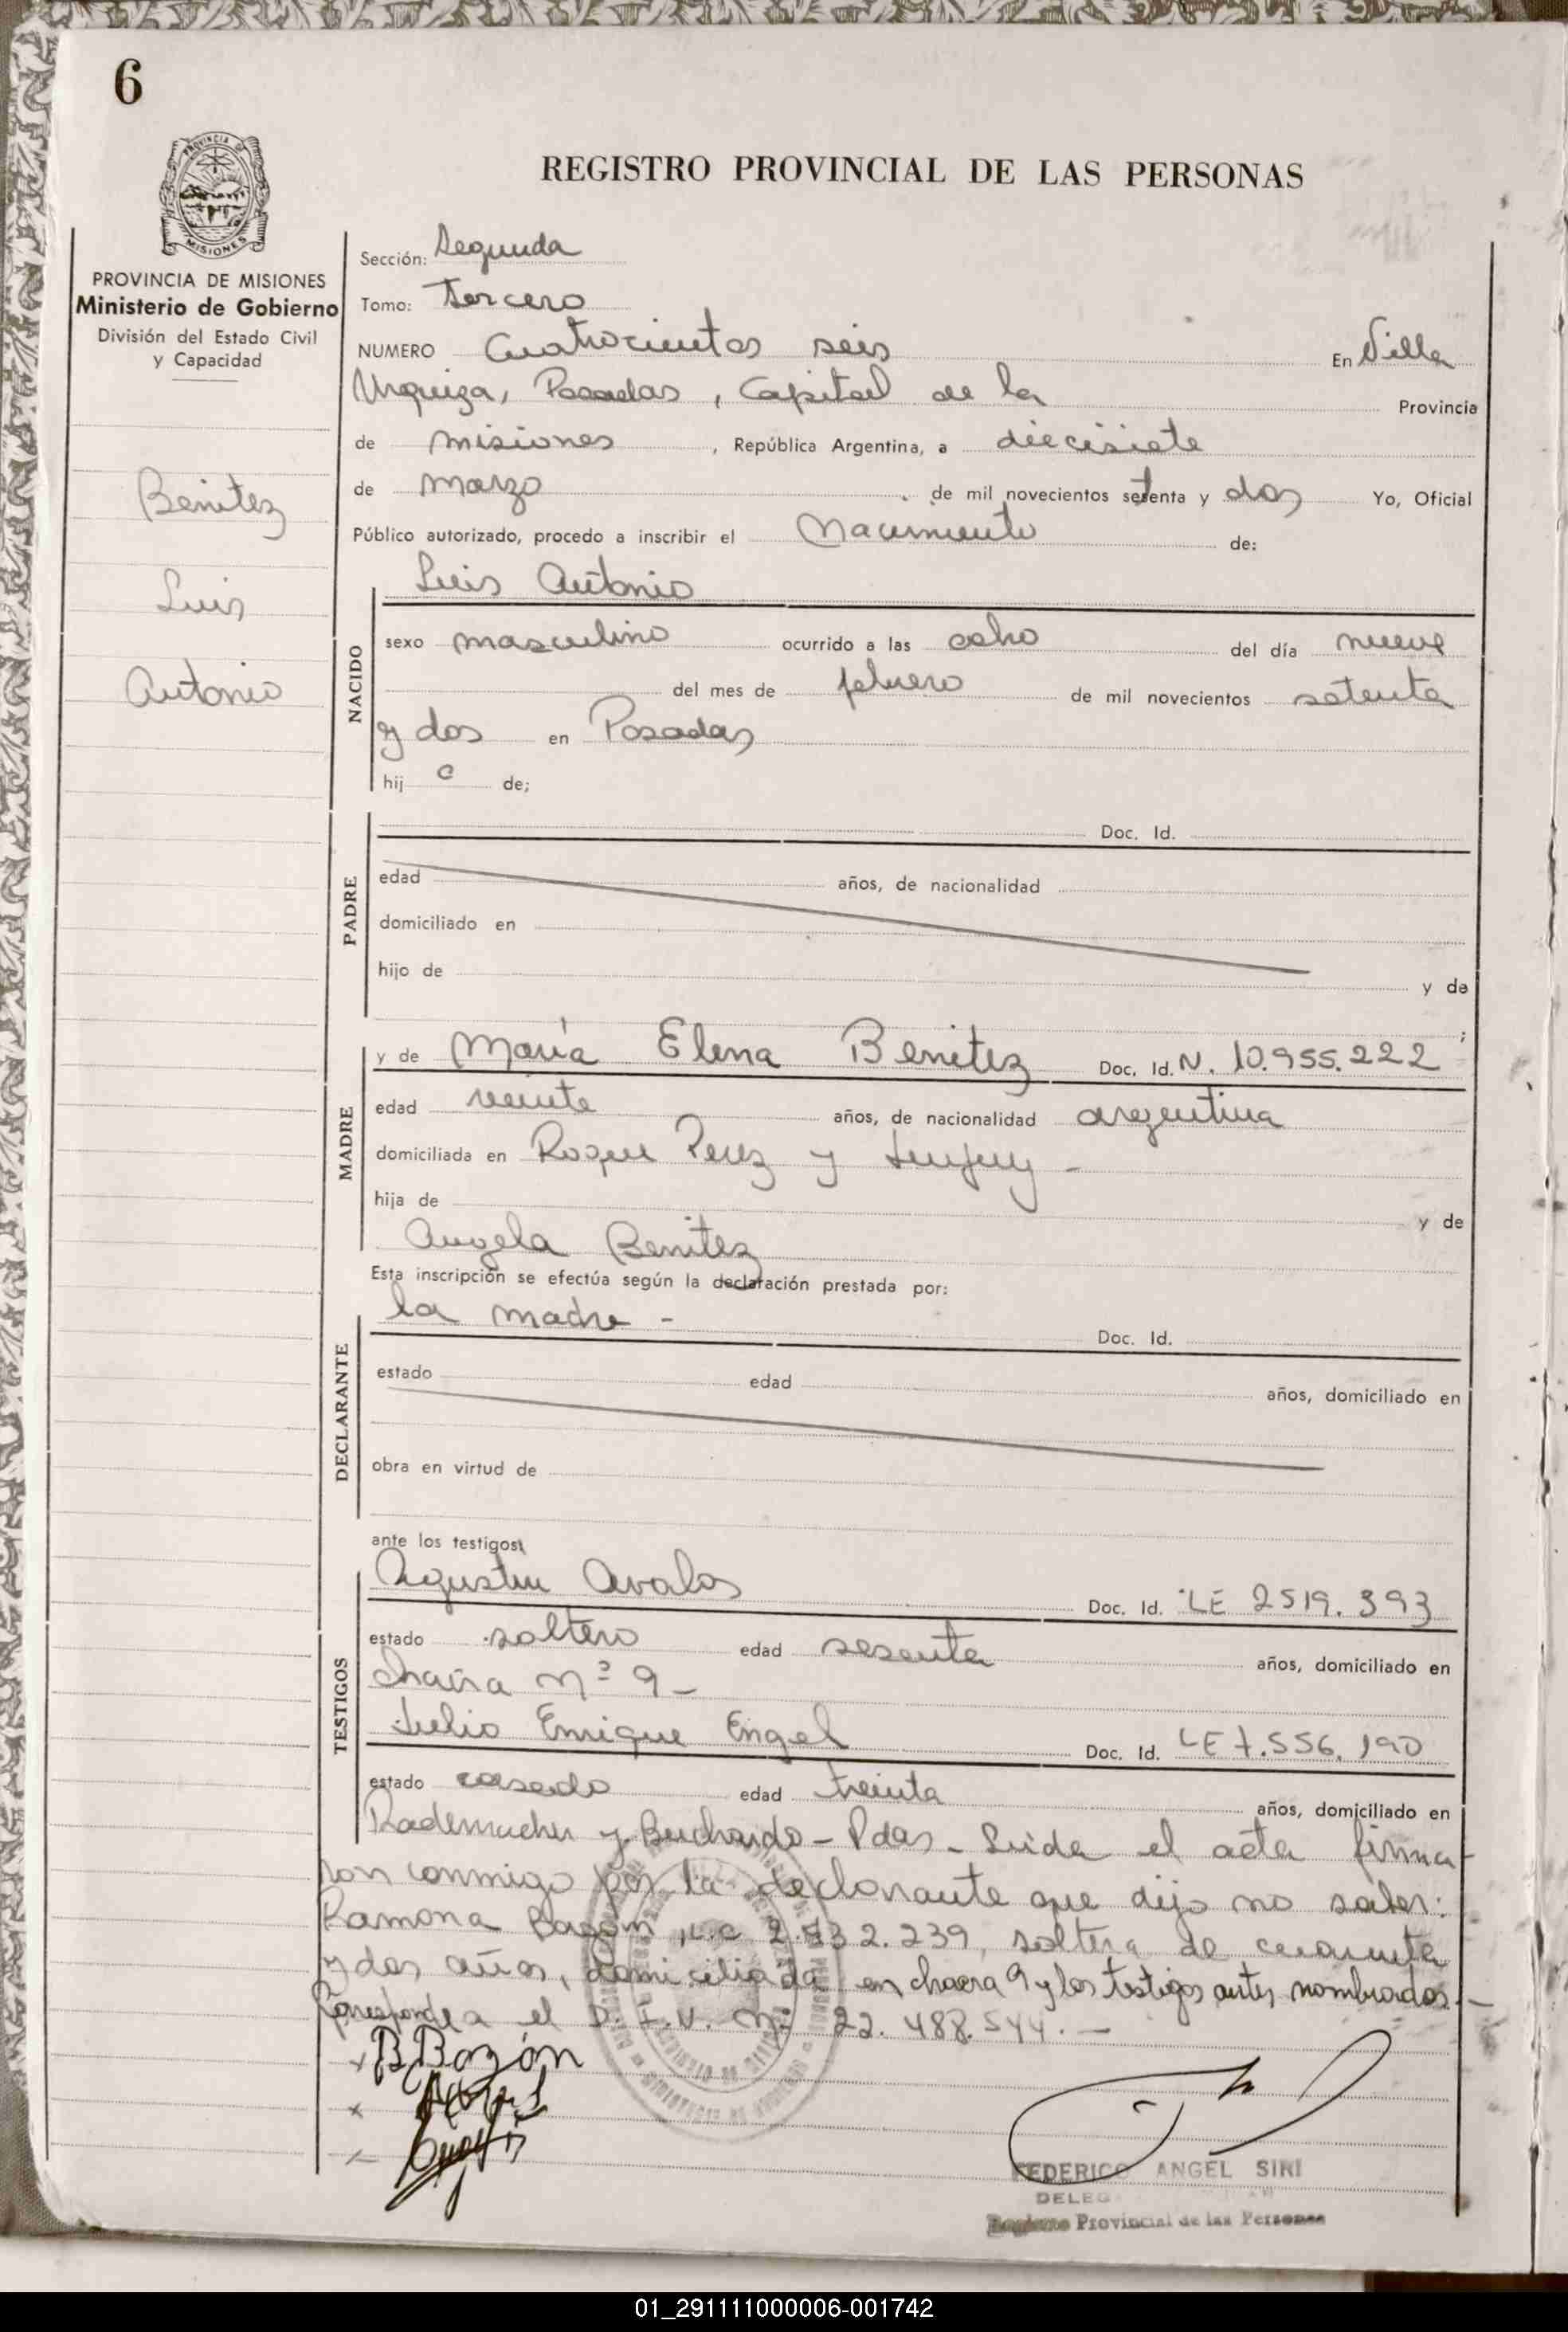 6
PROVINCIA DE
MISIONES
REGISTRO PROVINCIAL DE LAS PERSONAS
PROVINCIA DE MISIONES
Ministerio de Gobierno
División del Estado Civil
y Capacidad
Benitez
Luis
Antonio
Sección: Segunda
Tomo: Tercero
NUMERO Cuatrocientos seis En Villa
Urquiza, Posadas, Capital de la Provincia
de misiones, República Argentina, a diecisiete
de marzo de mil novecientos setenta y dos Yo, Oficial
Público autorizado, procedo a inscribir el Nacimiento de:
Luis Antonio
NACIDO
sexo masculino ocurrido a las ocho del día nueve
del mes de febrero de mil novecientos setenta
y dos en Posadas
hij o de;
PADRE
Doc. Id.
edad años, de nacionalidad
domiciliado en
hijo de y de
;
MADRE
y de María Elena Benitez Doc. Id. N. 10.955.222
edad veinte años, de nacionalidad argentina
domiciliada en Roque Perez y Jujuy -
hija de y de
Angela Benitez
Esta inscripción se efectúa según la declaración prestada por:
la madre -
DECLARANTE
Doc. Id.
estado edad años, domiciliado en
obra en virtud de
ante los testigos:
TESTIGOS
Agustin Avalos Doc. Id. LE 2519.393
estado soltero edad sesenta años, domiciliado en
chacra Nº 9 -
Julio Enrique Engel Doc. Id. LE 7.556.190
estado casado edad treinta años, domiciliado en
Rademacher y Buchardo - Pdas - Leida el acta firma
ron conmigo por la declarante que dijo no saber:
Ramona Bazán, L.C 2.732.239, soltera de cuarenta
y dos años, domiciliada en chacra 9 y los testigos antes nombrados. -
Corresponde a el D.I.N. Nº 22.488.544. -
x RBazón
x
x
FEDERICO ANGEL SIRI
DELEG
Registro Provincial de las Personas
01_291111000006-001742